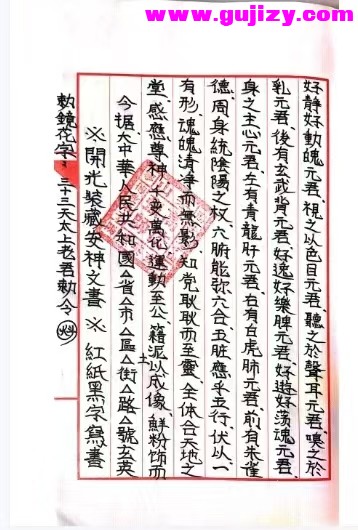 www.gujizy.com
勅鏡花字：三十三天太上老君勅令
※開光裝藏安神文書※ 紅紙黑字寫書
今据大中華人民共和國△省△市△區△街△路△號玄英
堂、感應尊神、千变萬化、運動至公、籍泥土以成像、鮮粉饰而
有形、魂魄清淨而無影、知党耿耿而至靈、全体合天地之
德、周身統陰陽之权、六腑能弥六合、五脏應乎五行、伏以一
身之主心元君、左有青龍肝元君、右有白虎肺元君、前有朱雀
乳元君、後有玄武背元君、好逸好樂脾元君、好遊好荡魂元君、
好静好動魄元君、視之以色目元君、聽之於聲耳元君、嗅之於